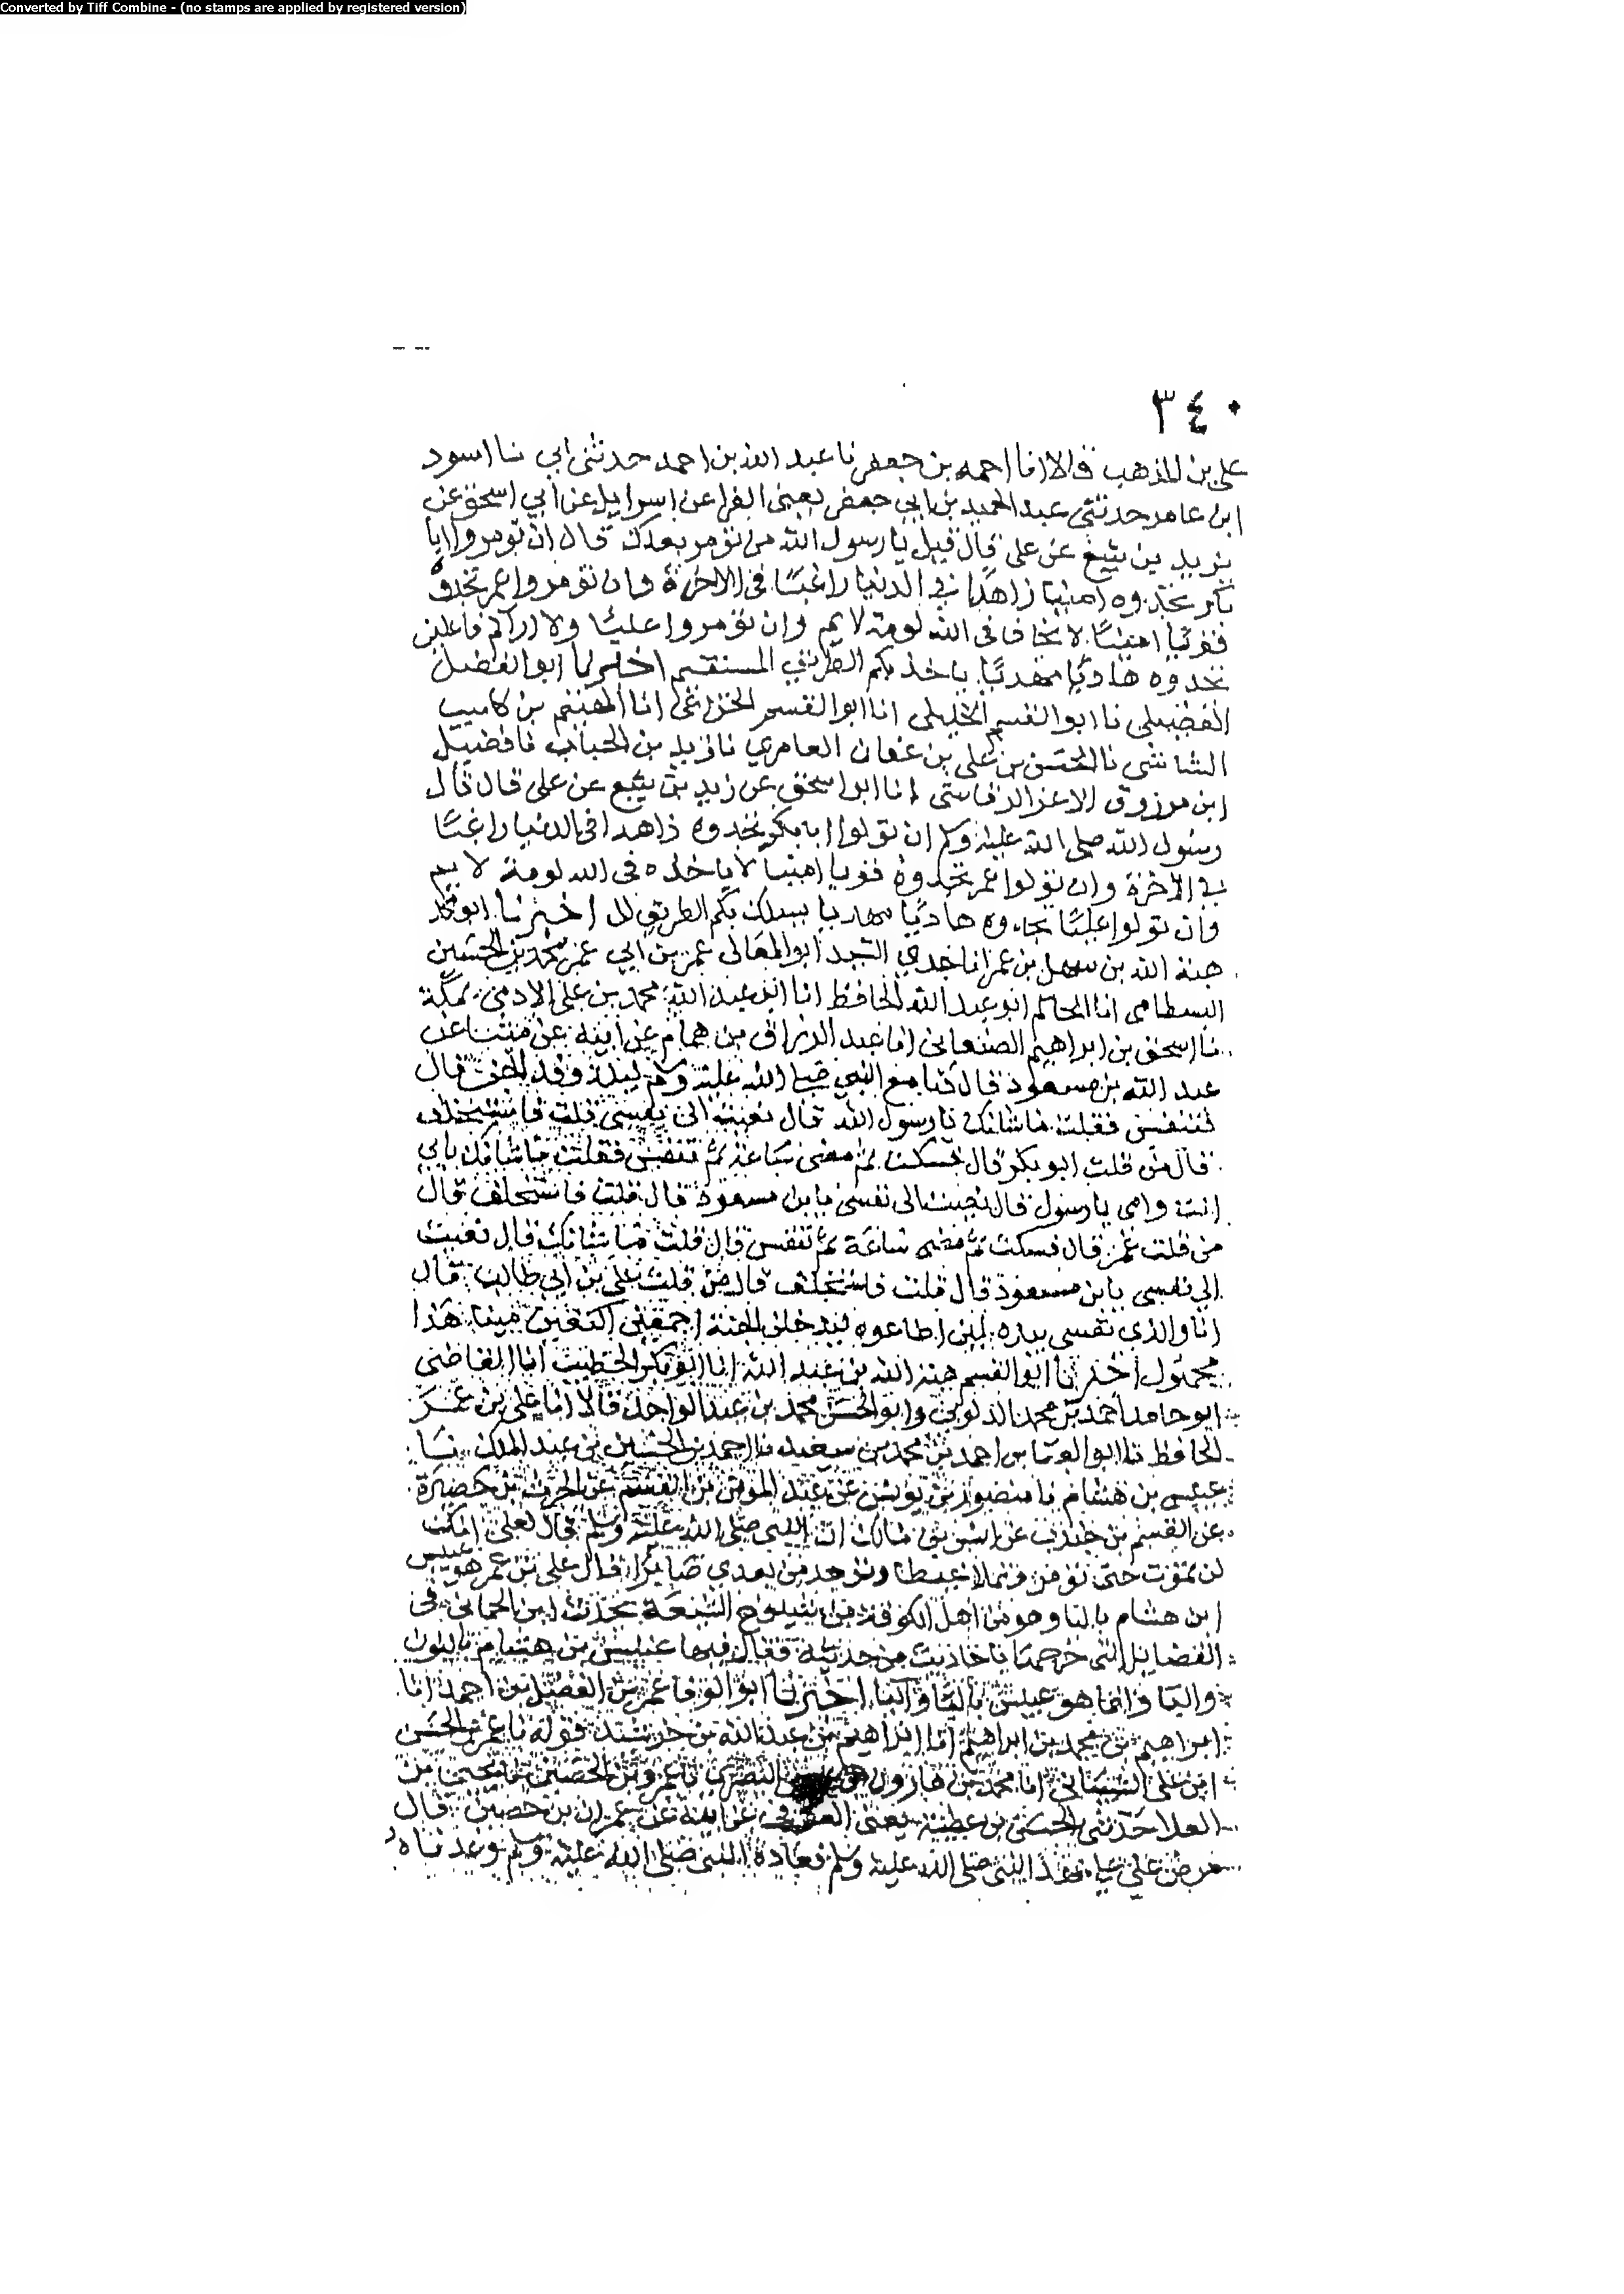 Converted by Tiff Combine - (no stamps are applied by registered version)
٣٤٠
على بن المذهب قالا انا احمد بن جعفر نا عبد الله بن احمد حدثنى ابي نا اسود
ابن عامر حدثنى عبد الحميد بن ابي جعفر يعنى الفرا عن اسرايل عن ابي اسحق عن
زيد بن يثيع عن على قال قيل يا رسول الله من نومر بعدك قال ان تومروا ابا
بكر تجدوه امينا زاهدا في الدنيا راغبا فى الاخرة وان تومروا عمر تجدوه
قويا امينا لا يخاف فى الله لومة لايم وان تومروا عليا ولا اراكم فاعلين
تجدوه هاديا مهديا ياخذ بكم الطريق المستقيم اخبرنا ابو الفضل
الفضيلى نا ابو القسم الخليلى انا ابو القسم الخزاعى انا الهيثم بن كليب
الشاشى نا الحسن بن على بن عفان العامري نا زيد بن الحباب نا فضيل
ابن مرزوق الاغر الرقاشى انا ابو اسحق عن زيد بن يثيع عن على قال قال
رسول الله صلى الله عليه وسلم ان تولوا ابا بكر تجدوه زاهدا فى الدنيا راغبا
في الاخرة وان تولوا عمر تجدوه قويا امينا لا ياخذه فى الله لومة لايم
وان تولوا عليا تجدوه هاديا مهديا يسلك بكم الطريق اخبرنا ابو محمد
هبة الله بن سهل بن عمر انا جدي السيد ابو المعالى عمر بن ابي عمر محمد بن الحسين
البسطامى انا الحاكم ابو عبد الله الحافظ انا ابو عبد الله محمد بن على الادمى بمكة
نا اسحق بن ابراهيم الصنعانى انا عبد الرزاق بن همام عن ابيه عن مينا عن
عبد الله بن مسعود قال كنا مع النبي صلى الله عليه وسلم ليلة وفد الجن قال
فتنفس فقلت ما شانك يا رسول الله قال نعيت الى نفسى قلت فاستخلف
قال من قلت ابو بكر قال فسكت ثم مضى ساعة ثم تنفس فقلت ما شانك بابي
انت وامى يا رسول قال نعيت الى نفسى يا بن مسعود قال قلت فاستخلف قال
من قلت عمر قال فسكت ثم مضى ساعة ثم تنفس قال قلت ما شانك قال نعيت
الى نفسى يا بن مسعود قال قلت فاستخلف قال من قلت على بن ابي طالب قال
اما والذى نفسى بيده لين اطاعوه ليدخلن الجنة اجمعين اكتعين مينا هذا
مجهول اخبرنا ابو القسم هبة الله بن عبد الله انا ابو بكر الخطيب انا القاضى
ابو حامد احمد بن محمد الدلوى وابو الحسن محمد بن عبد الواحد قالا انا على بن عمر
الحافظ نا ابو العباس احمد بن محمد بن سعيد نا احمد بن الحسين بن عبد الملك نا
عبيس بن هشام نا منصور بن يونس عن عبد المومن بن القسم عن الحرث بن حصيرة
عن القسم بن جندب عن انس بن مالك ان النبي صلى الله عليه وسلم قال لعلى انك
لن تموت حتى تومر وتملا غيظا وتوجد من بعدي صابرا قال على بن عمر هو عبيس
ابن هشام بالبا وهو من اهل الكوفة من شيوخ الشيعة تحدث ابن الحمانى فى
الفضايل التى خرجها باحاديث من حديثه فقال فيها عنبس بن هشام بالنون
والبا وانما هو عبيس بالبا واليا اخبرنا ابو الوفا عمر بن الفضل بن احمد انا
ابراهيم بن محمد بن ابراهيم انا ابراهيم بن عبد الله بن خرشيد قوله نا عمر بن الحسن
ابن على الشيبانى انا محمد بن هارون البصرى نا عمرو بن الحصين نا يحيى بن
العلا حدثنى الحسن بن عطية يعنى العوفى عن ابيه عن عمران بن حصين قال
مرض على عهد النبى صلى الله عليه وسلم فعاده النبى صلى الله عليه وسلم وعدناه